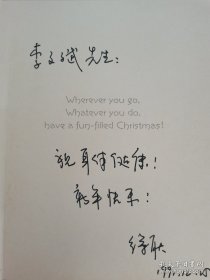 李文斌先生：
Wherever you go,
Whatever you do,
have a fun-filled Christmas!
祝身体健康！
新年快乐！